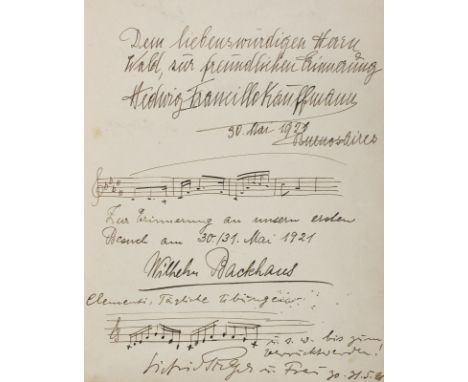 Dem liebenswürdigen Herrn
Wald, zur freundlichen Erinnerung
Hedwig Francillo Kauffmann
30. Mai 1921
Buenos Aires
Zur Erinnerung an unsern ersten
Besuch am 30./31. Mai 1921
Wilhelm Backhaus
Clementi, Tägliche Übungen
u. s. w. bis zum
verrücktwerden!
u. Frau 30-31.5.21